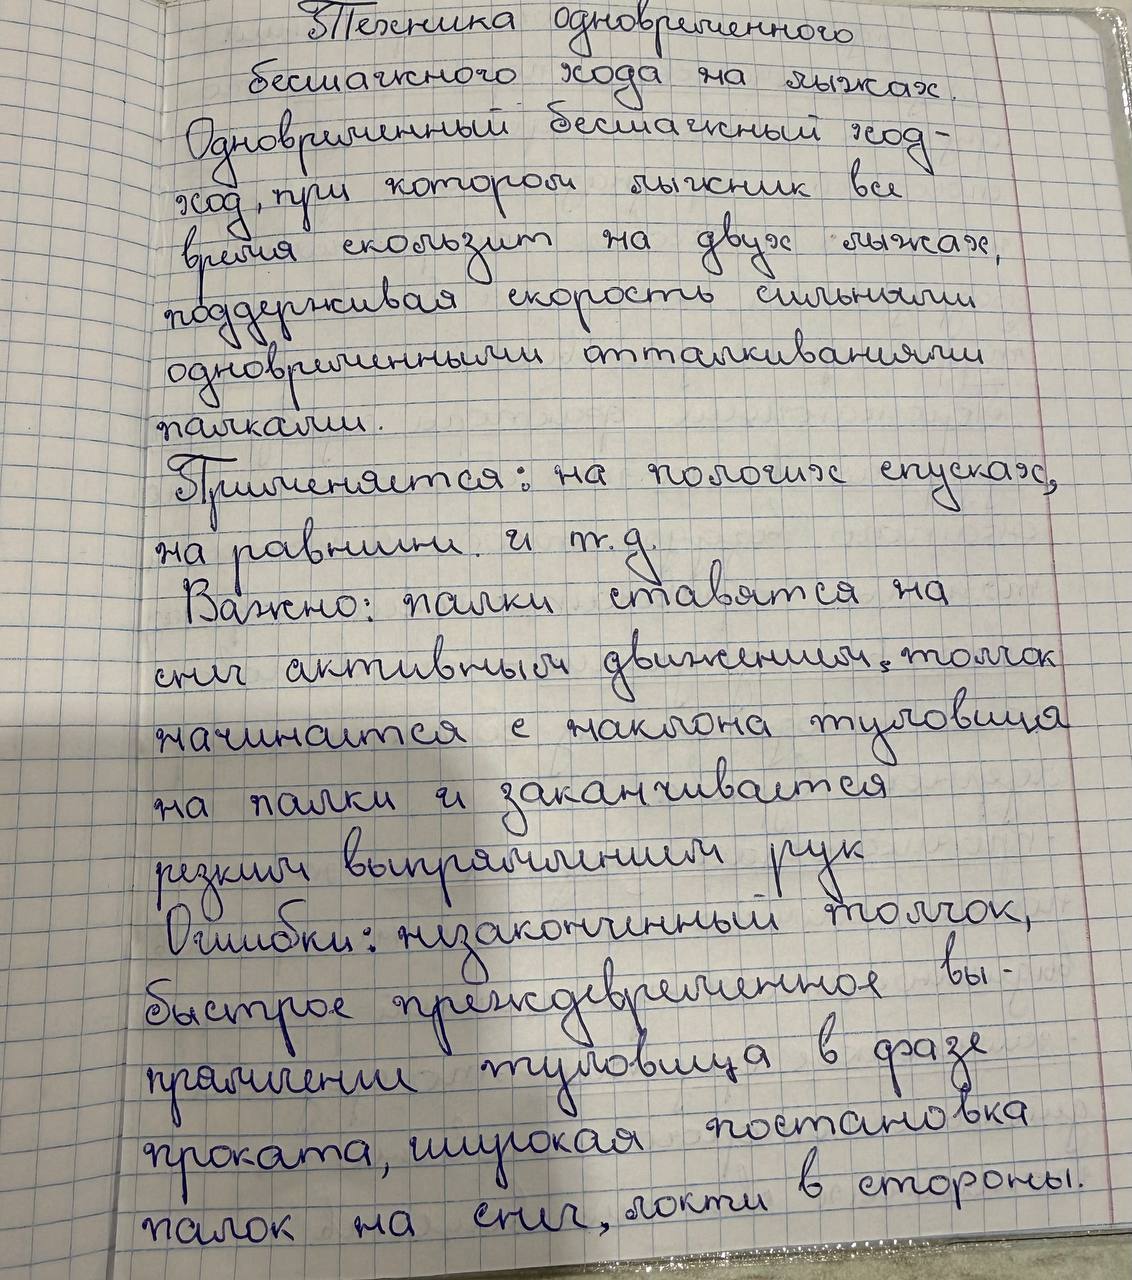 Техника одновременного
бесшажного хода на лыжах.
Одновременный бесшажный ход-
ход, при котором лыжник все
время скользит на двух лыжах,
поддерживая скорость сильными
одновременными отталкиваниями
палками.
Применяется: на пологих спусках,
на равнине. и т.д.
Важно: палки ставятся на
снег активным движением, толчок
начинается с наклона туловища
на палки и заканчивается
резким выпрямлением рук
Ошибки: незаконченный толчок,
быстрое преждевременное вы-
прямление туловища в фазе
проката, широкая постановка
палок на снег, локти в стороны.